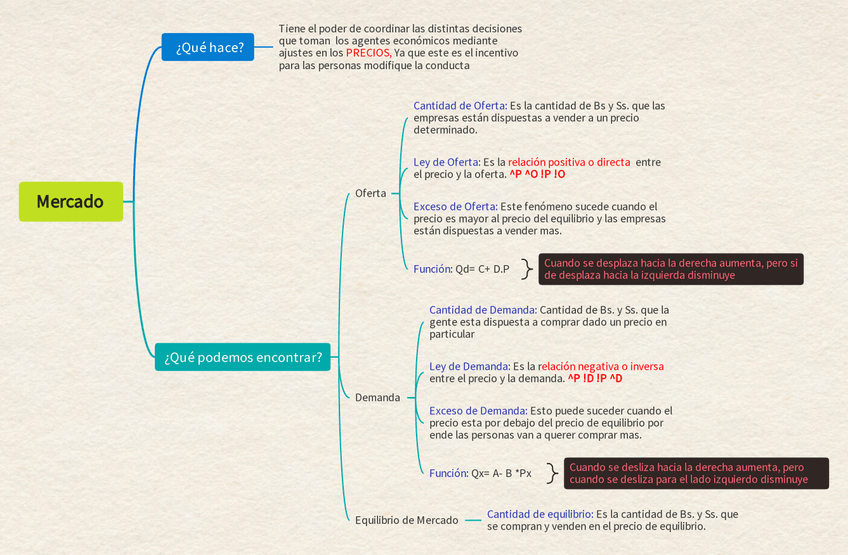 Mercado
¿Qué hace?
Tiene el poder de coordinar las distintas decisiones
que toman los agentes económicos mediante
ajustes en los PRECIOS, Ya que este es el incentivo
para las personas modifique la conducta
¿Qué podemos encontrar?
Oferta
Cantidad de Oferta: Es la cantidad de Bs y Ss. que las
empresas están dispuestas a vender a un precio
determinado.
Ley de Oferta: Es la relación positiva o directa entre
el precio y la oferta. ^P ^O !P !O
Exceso de Oferta: Este fenómeno sucede cuando el
precio es mayor al precio del equilibrio y las empresas
están dispuestas a vender mas.
Función: Qd= C+ D.P
Cuando se desplaza hacia la derecha aumenta, pero si
de desplaza hacia la izquierda disminuye
Demanda
Cantidad de Demanda: Cantidad de Bs. y Ss. que la
gente esta dispuesta a comprar dado un precio en
particular
Ley de Demanda: Es la relación negativa o inversa
entre el precio y la demanda. ^P !D !P ^D
Exceso de Demanda: Esto puede suceder cuando el
precio esta por debajo del precio de equilibrio por
ende las personas van a querer comprar mas.
Función: Qx= A- B *Px
Cuando se desliza hacia la derecha aumenta, pero
cuando se desliza para el lado izquierdo disminuye
Equilibrio de Mercado
Cantidad de equilibrio: Es la cantidad de Bs. y Ss. que
se compran y venden en el precio de equilibrio.